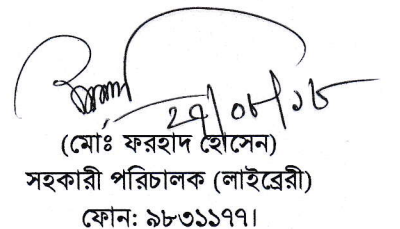 ২৭/০৮/১৮
(মোঃ ফরহাদ হোসেন)
সহকারী পরিচালক (লাইব্রেরী)
ফোন: ৯৮৩১১৭৭।